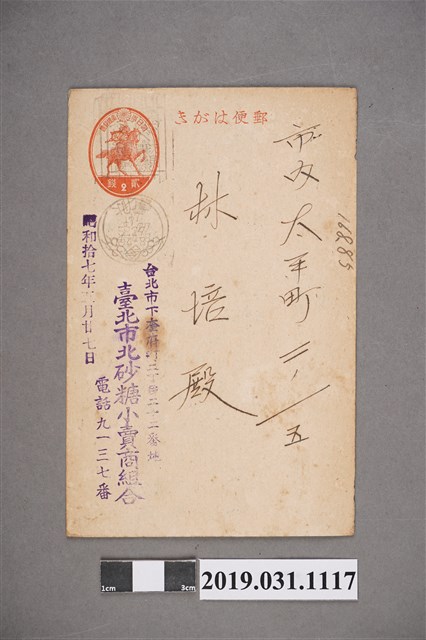 郵便はがき
貳 2 錢
市内太平町二ノ一五
林培殿
16885
台北市下奎府町二丁目二十二番地
臺北市北砂糖小賣商組合
電話九一三七番
昭和拾七年二月廿七日
1cm
3cm
2019.031.1117